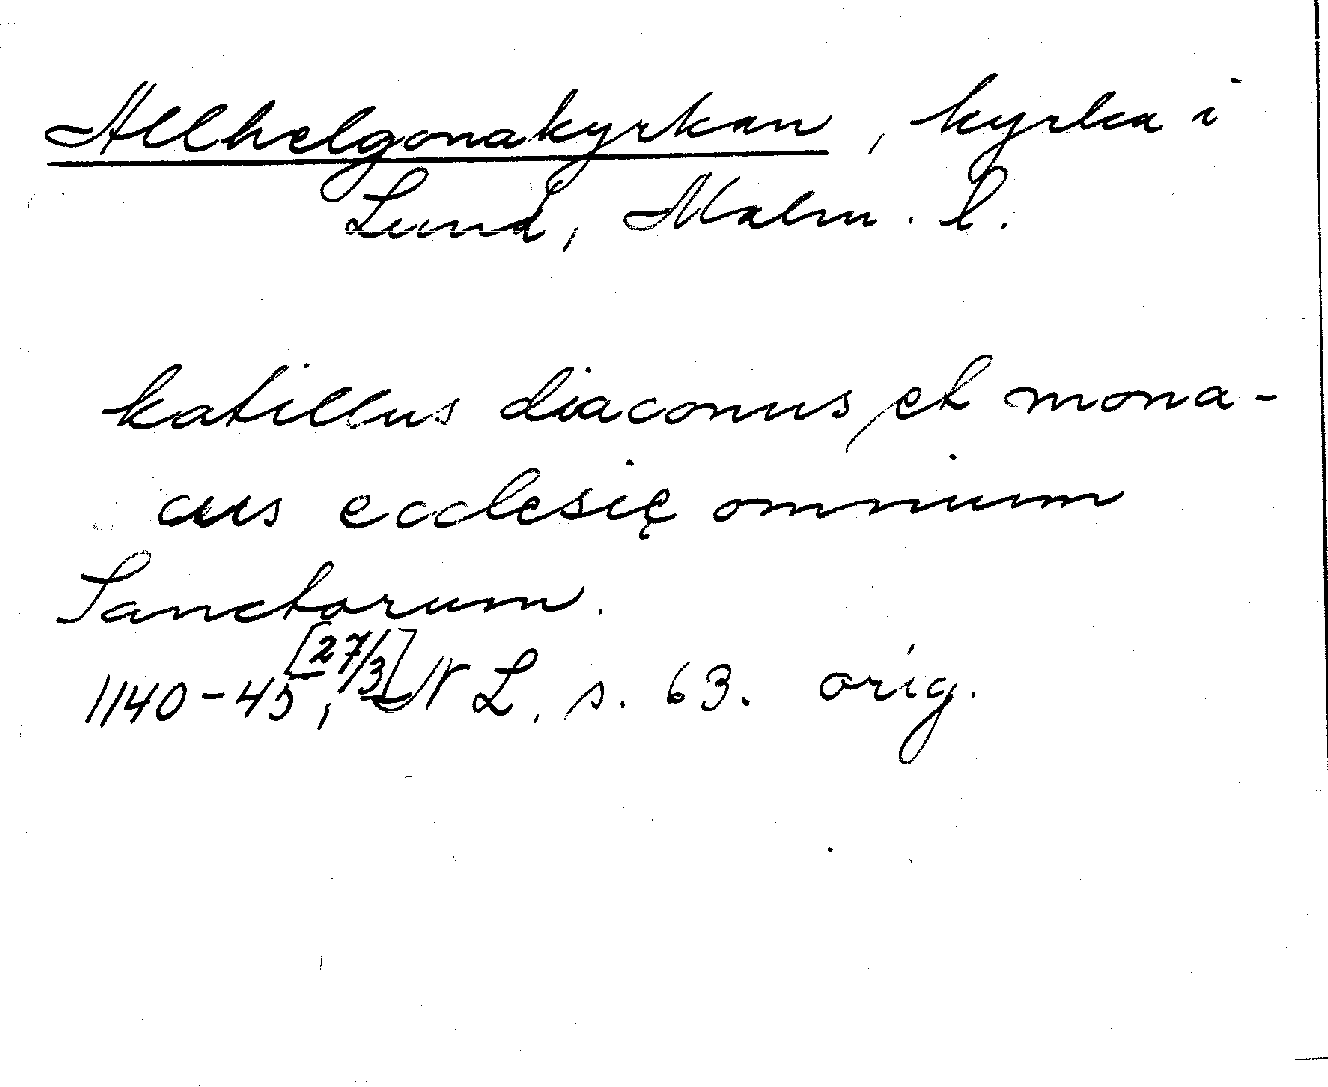 Allhelgonakyrkan, kyrka i
Lund, Malm. l.
katillus diaconus et mona-
cus ecclesię omnium
Sanctorum.
1140-45 [27/3], N L. s. 63. orig.